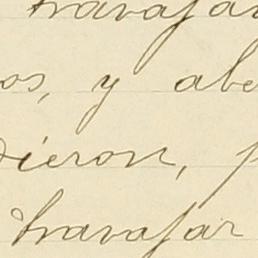 travajar
os, y abe
dieron, p
travajar